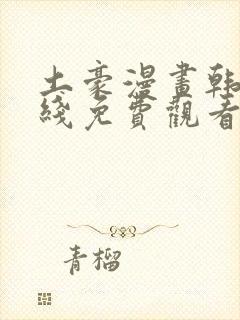 土豪漫畫韩
綫免費觀看
青榴